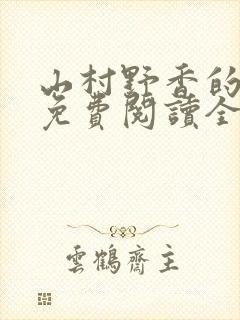 山村野香的
免費閱讀全
雲鶴齋主